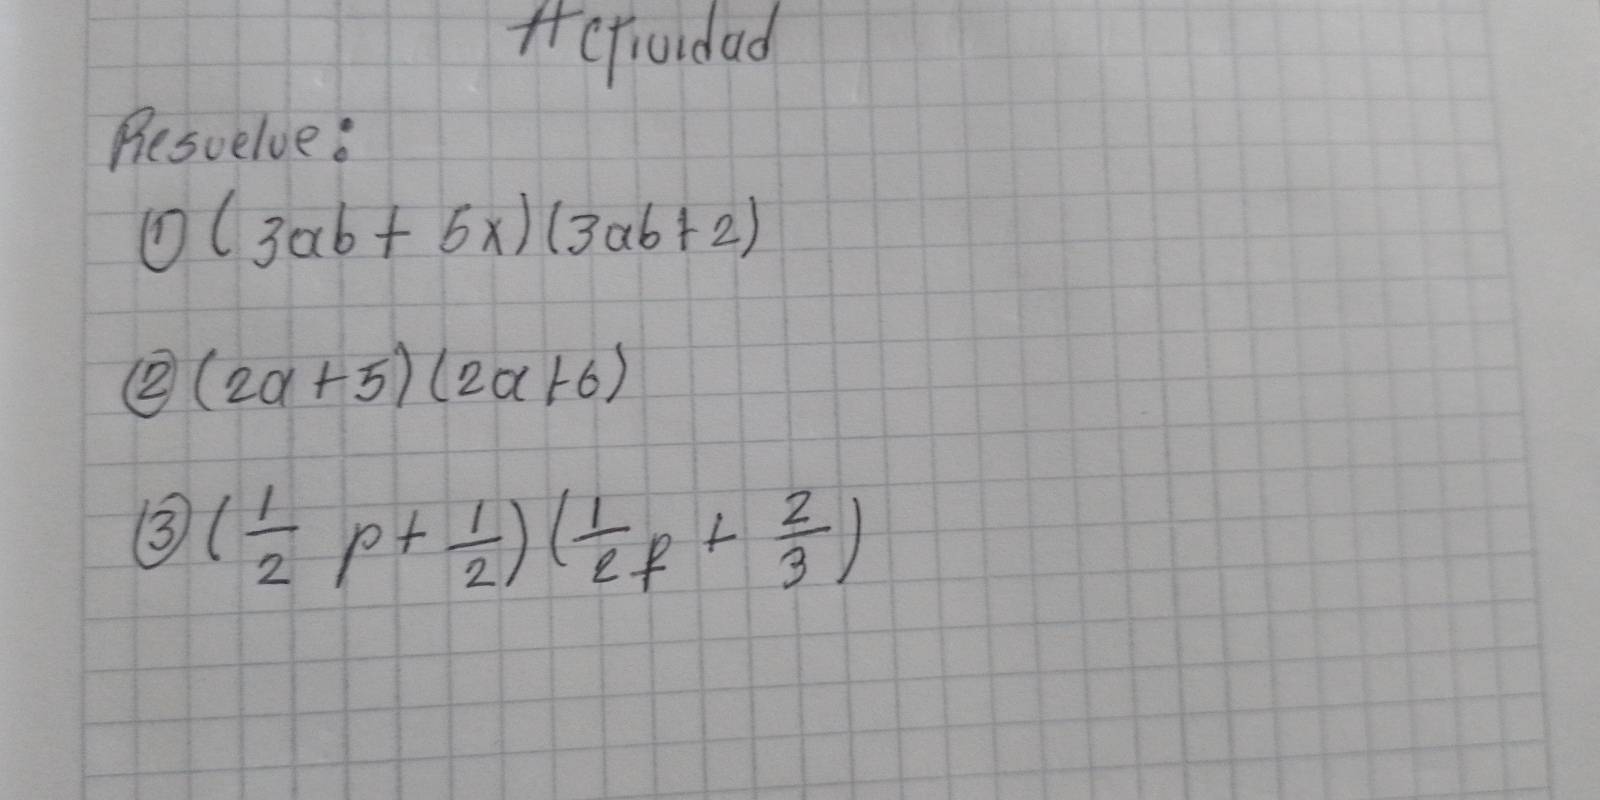 Actividad
Resuelve:
① (3ab + 5x)(3ab+2)
② (2a+5)(2a+6)
③ (1/2 p + 1/2)(1/2 p + 2/3)